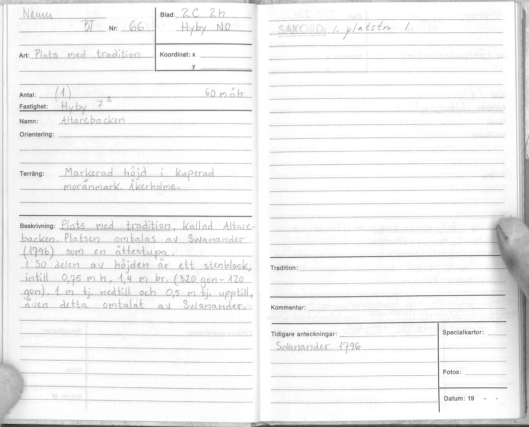 Neum
BT Nr: 66
Blad: 2C 2h
Hyby NO
Art: Plats med tradition
Koordinat: x
y
Antal: (1) 60 möh
Fastighet: Hyby 7²
Namn: Altarebacken
Orientering:
Terräng: Markerad höjd i kuperad
moränmark. Åkerholme.
Beskrivning: Plats med tradition, kallad Altare-
backen. Platsen omtalas av Swanander
(1796) som en ättestupa.
I SO delen av höjden är ett stenblock,
intill 0,75 m h, 1,4 m br. (320 gon-120
gon), 1 m tj nedtill och 0,5 m tj upptill,
även detta omtalat av Swanander.
SAKORD: 1. platstr 1.
Tradition:
Kommentar:
Tidigare anteckningar:
Swanander 1796
Specialkartor:
Fotos:
Datum: 19 - -